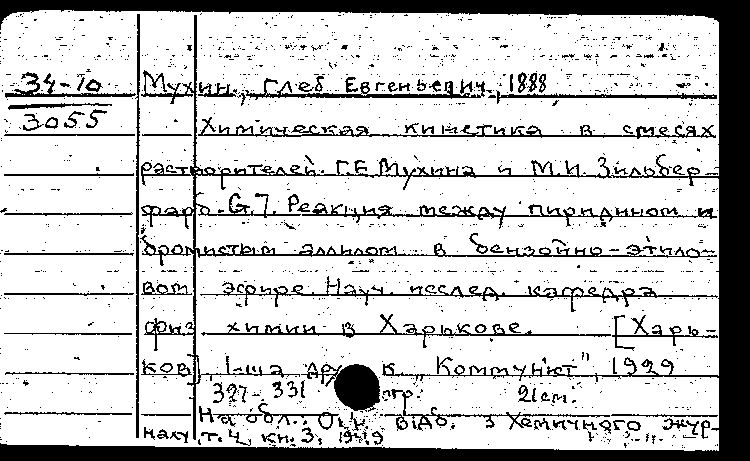 34-10
3055
Мухин, Глеб Евгеньевич, 1888
Химическая кинетика в смесях
растворителей. Г.Е. Мухина и М.И. Зильбер-
фарб. G.7. Реакция между пиридином и
бромистым аллилом в бензойно-этило-
вом эфире. Науч. исслед. кафедра
физ. химии в Харькове. [Харь-
ков], 1-ша друк. „Коммуніст", 1929
327-331 стр. 21 cm.
На обл.: Окр. відб. з Хемичного жур-
налу, т. 4, кн. 3, 1929